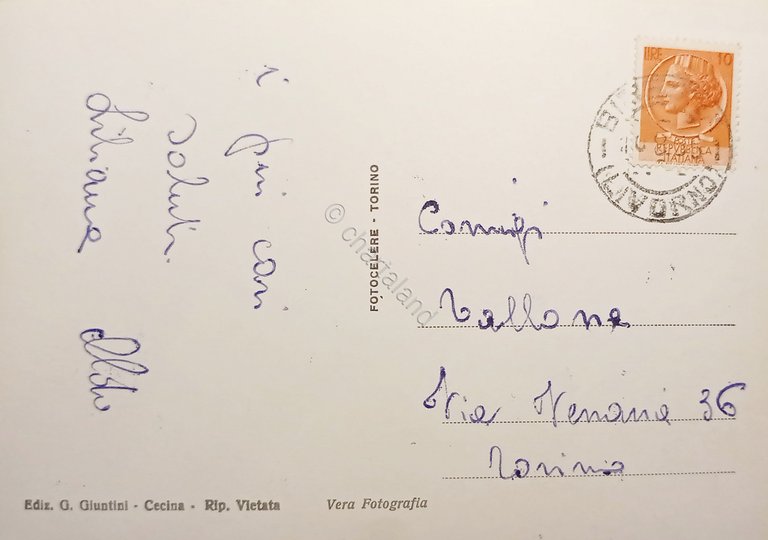 i più cari
saluti.
Liliana Aldo
FOTOCELERE - TORINO
© chartaland
LIRE 10
POSTE
REPVBBLICA
ITALIANA
(LIVORNO)
Coniugi
Vallone
Via 36
Torino
Ediz. G. Giuntini - Cecina - Rip. Vietata
Vera Fotografia